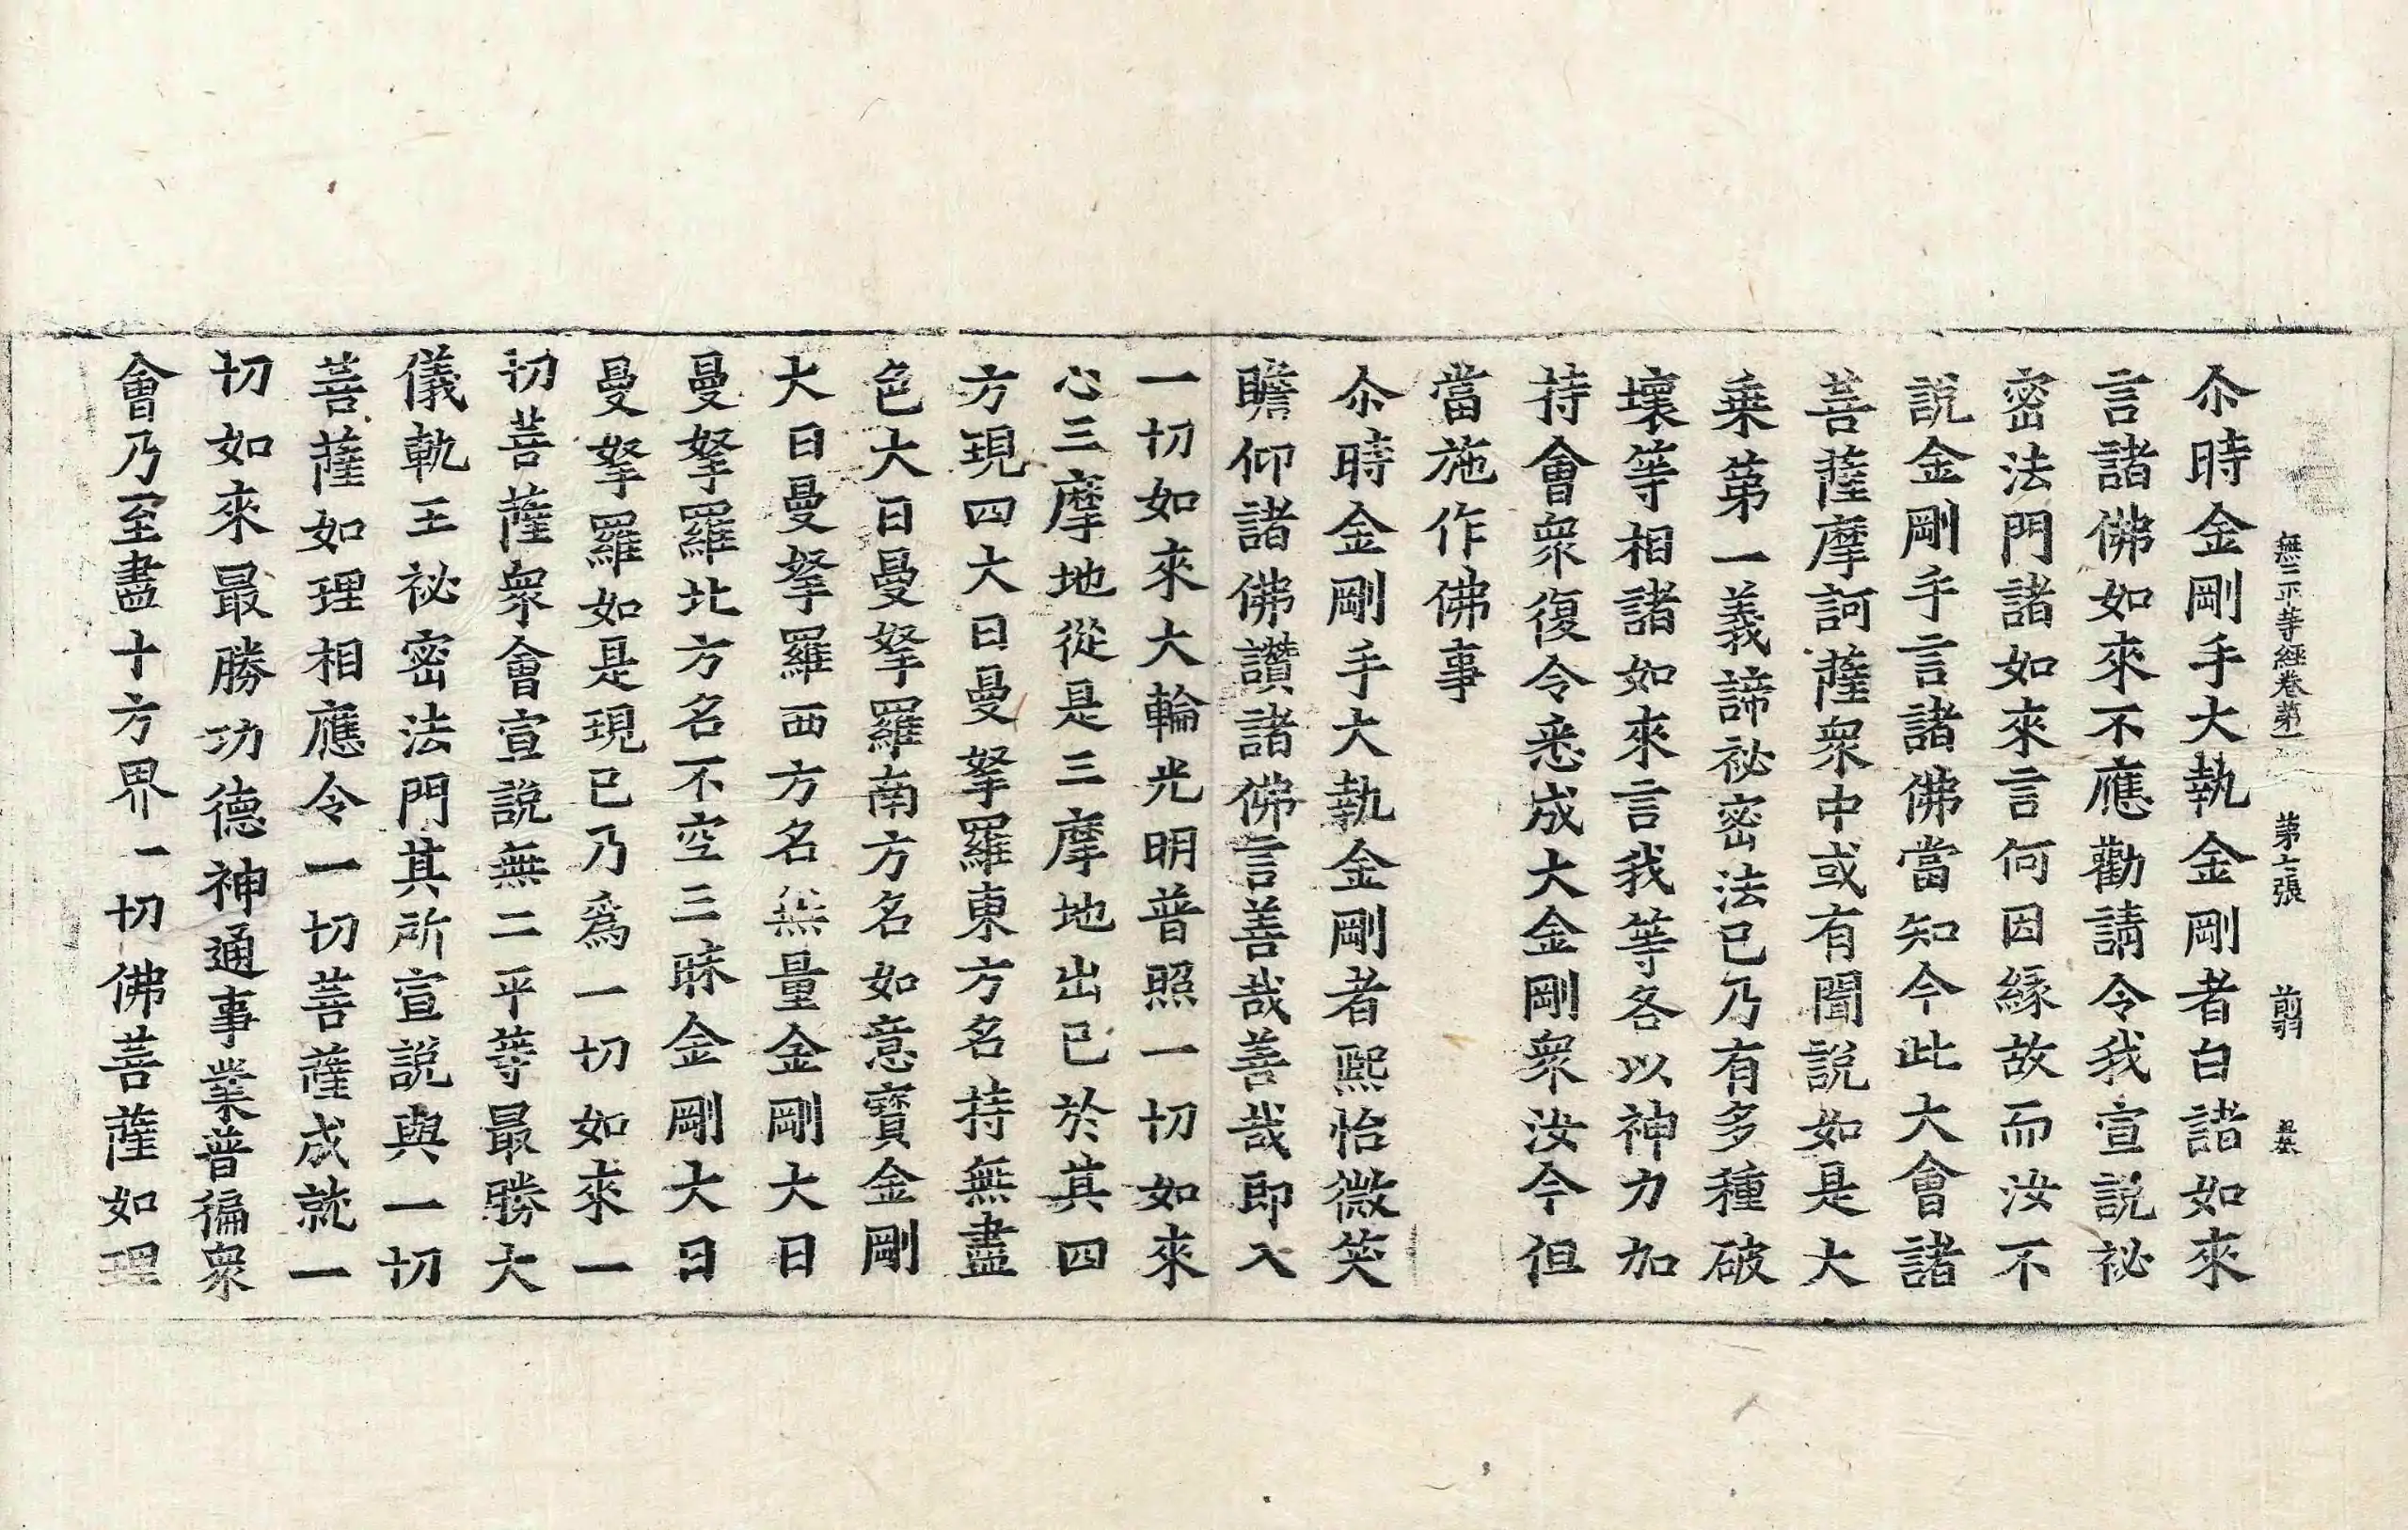 無二平等經卷第一 第七張 翦
尒時金剛手大執金剛者白諸如來
言諸佛如來不應勸請令我宣說祕
密法門諸如來言何因緣故而汝不
說金剛手言諸佛當知今此大會諸
菩薩摩訶薩衆中或有聞說如是大
乗第一義諦祕密法已乃有多種破
壞等相諸如來言我等各以神力加
持會衆復令悉成大金剛衆汝今但
當施作佛事
尒時金剛手大執金剛者熙怡微笑
瞻仰諸佛讚諸佛言善哉善哉即入
一切如來大輪光明普照一切如來
心三摩地從是三摩地出已於其四
方現四大曰曼拏羅東方名持無盡
色大曰曼拏羅南方名如意寶金剛
大曰曼拏羅西方名無量金剛大曰
曼拏羅北方名不空三昧金剛大曰
曼拏羅如是現已乃爲一切如來一
切菩薩衆會宣說無二平等最勝大
儀軌王祕密法門其所宣說與一切
菩薩如理相應令一切菩薩成就一
切如來最勝功德神通事業普徧衆
會乃至盡十方界一切佛菩薩如理